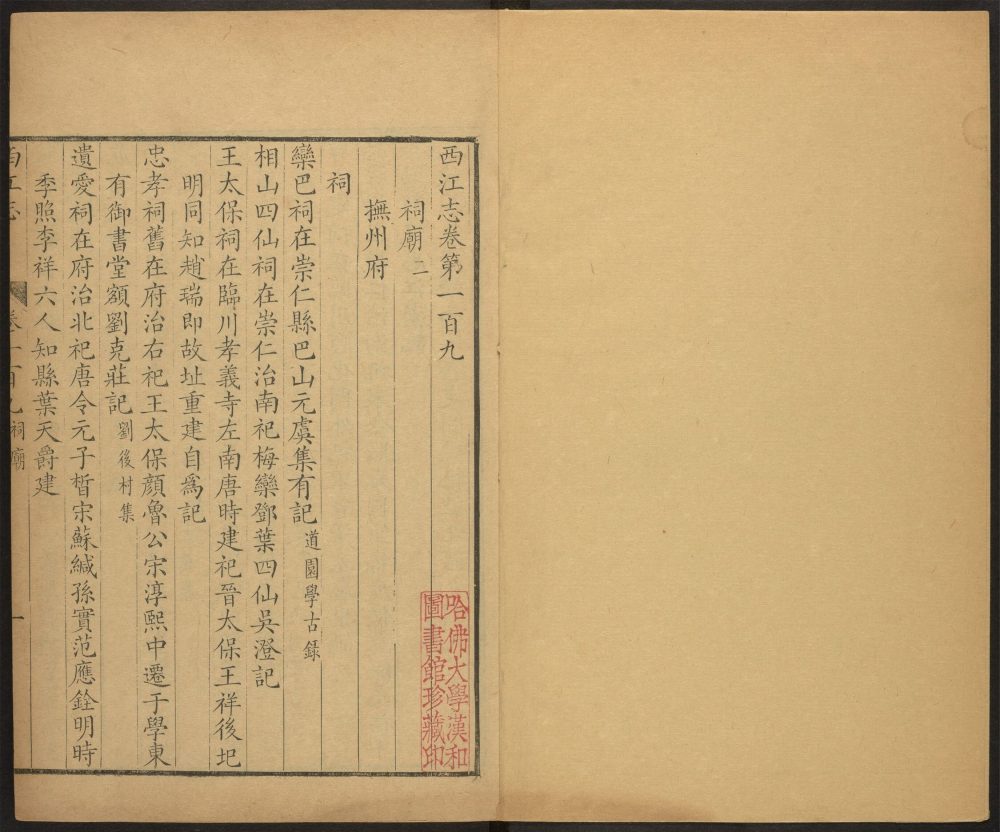 西江志卷第一百九
祠廟二
撫州府
祠
欒巴祠在崇仁縣巴山元虞集有記道園學古錄
相山四仙祠在崇仁治南祀梅欒鄧葉四仙吳澄記
王太保祠在臨川孝義寺左南唐時建祀晉太保王祥後圯
明同知趙瑞即故址重建自爲記
忠孝祠舊在府治右祀王太保顏魯公宋淳熙中遷于學東
有御書堂額劉克莊記劉後村集
遺愛祠在府治北祀唐令元子晳宋蘇緘孫實范應銓明時
季照李祥六人知縣葉天爵建
西江志 卷一百九祠廟 一
哈佛大學漢和
圖書館珍藏印